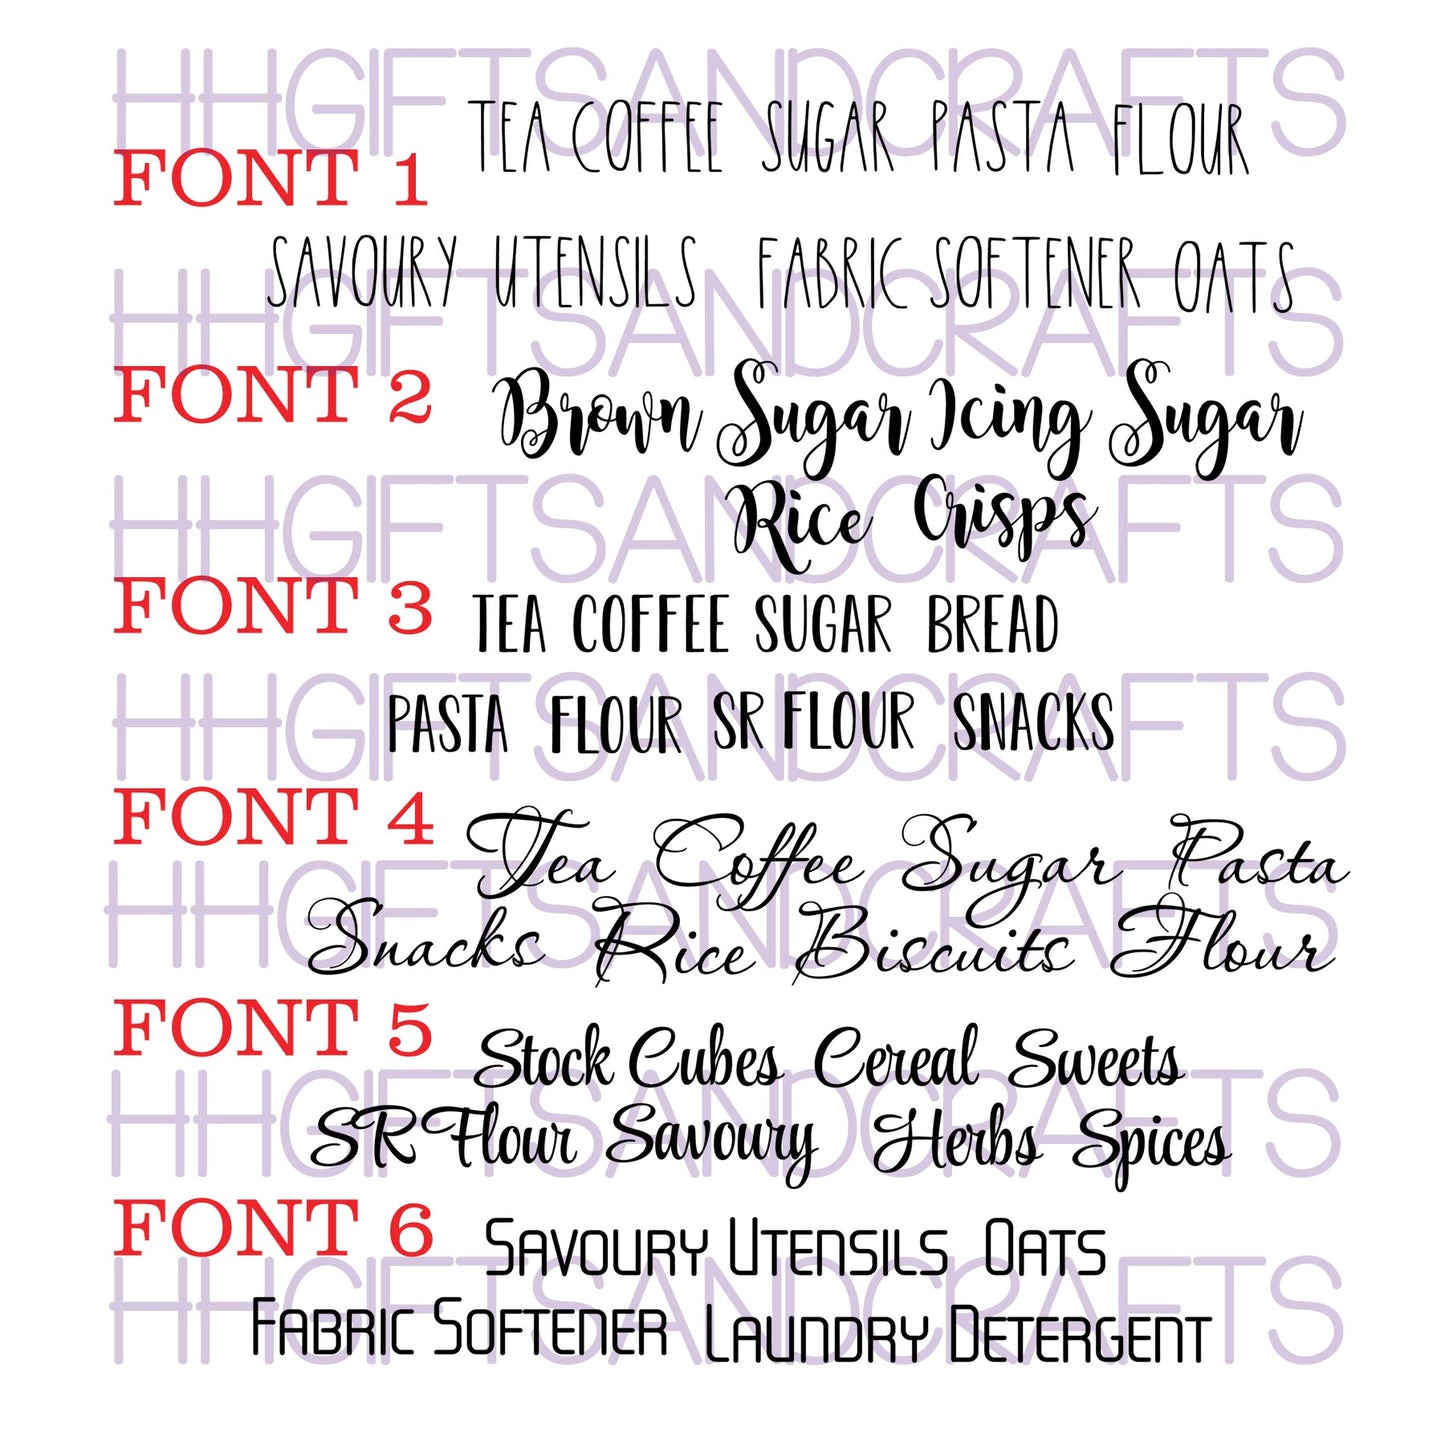 HHGIFTSANDCRAFTS
TEA COFFEE SUGAR PASTA FLOUR
FONT 1
SAVOURY UTENSILS FABRIC SOFTENER OATS
HHGIFTSANDCRAFTS
FONT 2
Brown Sugar Icing Sugar
HHGIFTSANDCRAFTS
Rice Crisps
FONT 3
TEA COFFEE SUGAR BREAD
HHGIFTSANDCRAFTS
PASTA FLOUR SR FLOUR SNACKS
FONT 4
Tea Coffee Sugar Pasta
HHGIFTSANDCRAFTS
Snacks Rice Biscuits Flour
FONT 5
Stock Cubes Cereal Sweets
HHGIFTSANDCRAFTS
SR Flour Savoury Herbs Spices
FONT 6
SAVOURY UTENSILS OATS
HHGIFTSANDCRAFTS
FABRIC SOFTENER LAUNDRY DETERGENT